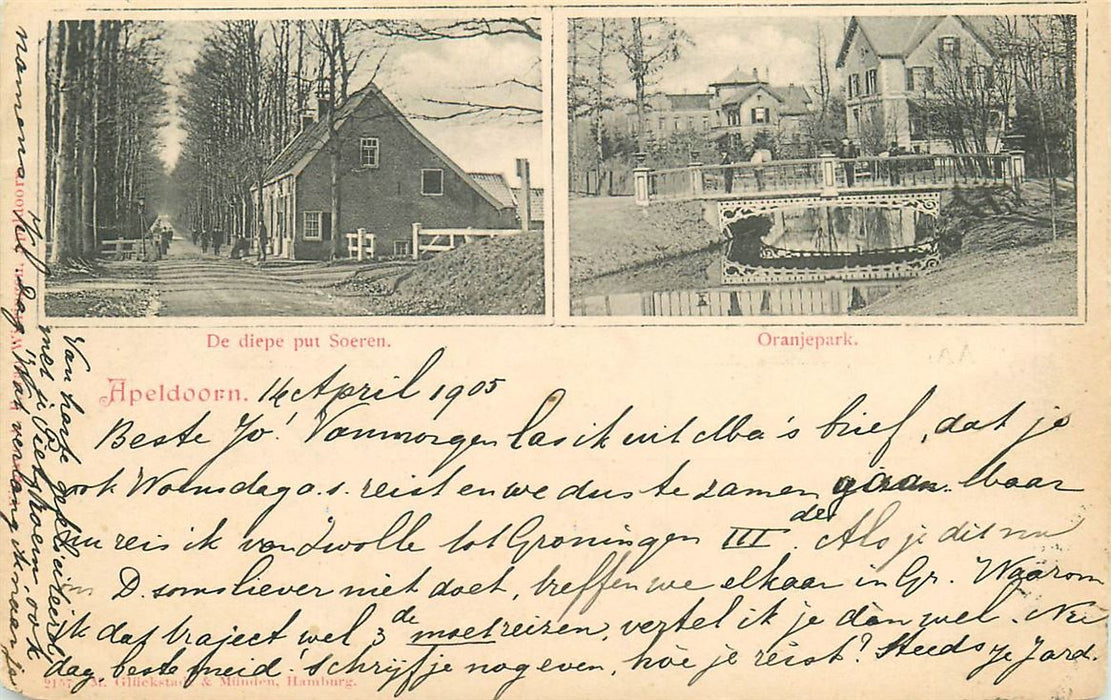 De diepe put Soeren.
Oranjepark.
Apeldoorn. 14 April 1905
Beste Jo! Vanmorgen las ik uit Ma's brief, dat je
ook Woensdag a.s. reist en we dus te zamen gaan. Maar
nu reis ik van Zwolle tot Groningen III de. Als je dit nu
D. soms liever niet doet, treffen we elkaar in Gr. Waarom
ik dat traject wel 3de moet reizen, vertel ik je dan wel. Nu
dag beste meid! Schrijf je nog even, hoe je reist? Steeds je Jord.
Van harte gefeliciteerd
met je Piet, noem ook
namens mij. Dag! Wat verlang ik naar
2157 M. Glückstadt & Münden, Hamburg.